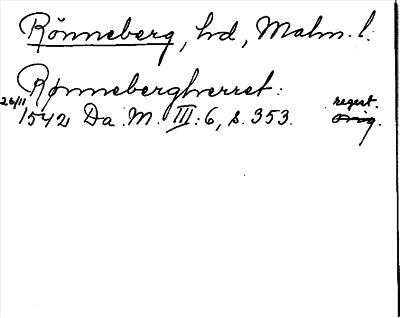 Rönneberg, hd, Malm. l.
Rønnebergherret:
26/11 1542 Da. M. III: 6, s. 353. regest. orig.